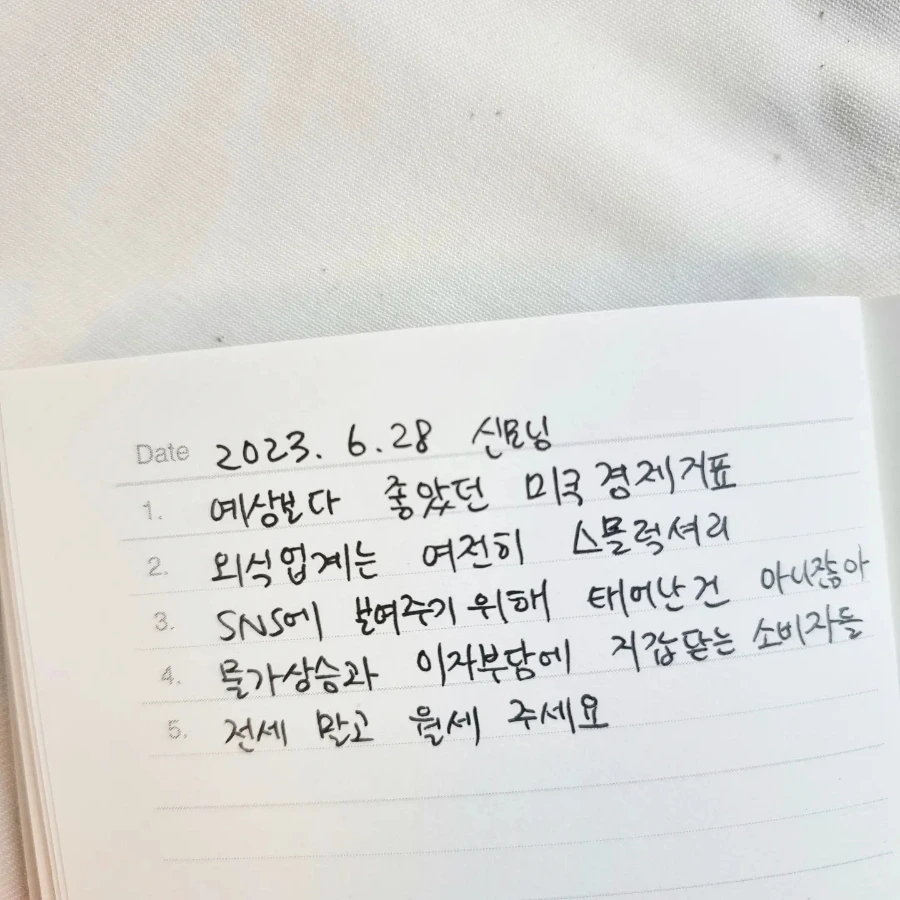 Date 2023. 6.28 신모닝
1. 예상보다 좋았던 미국 경제지표
2. 외식업계는 여전히 스몰럭셔리
3. SNS에 보여주기 위해 태어난건 아니잖아
4. 물가상승과 이자부담에 지갑닫는 소비자들
5. 전세 말고 월세 주세요